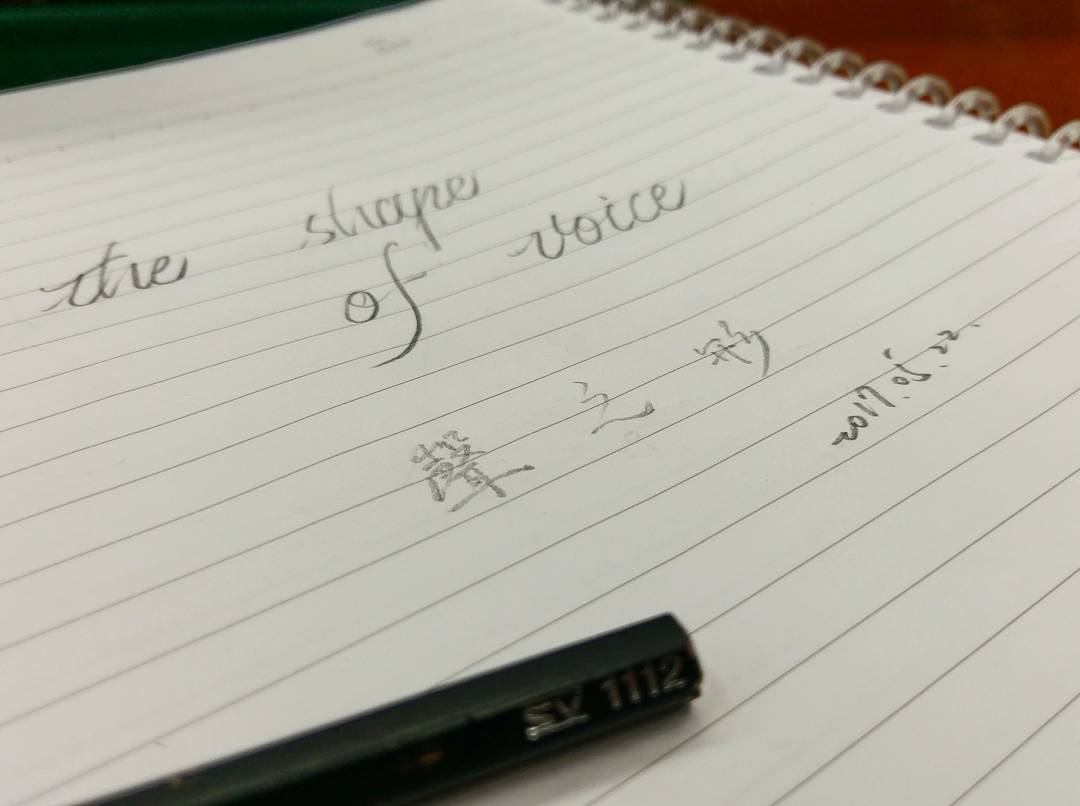 the shape
of voice
聲之形
2017.05.22.
SV 1112